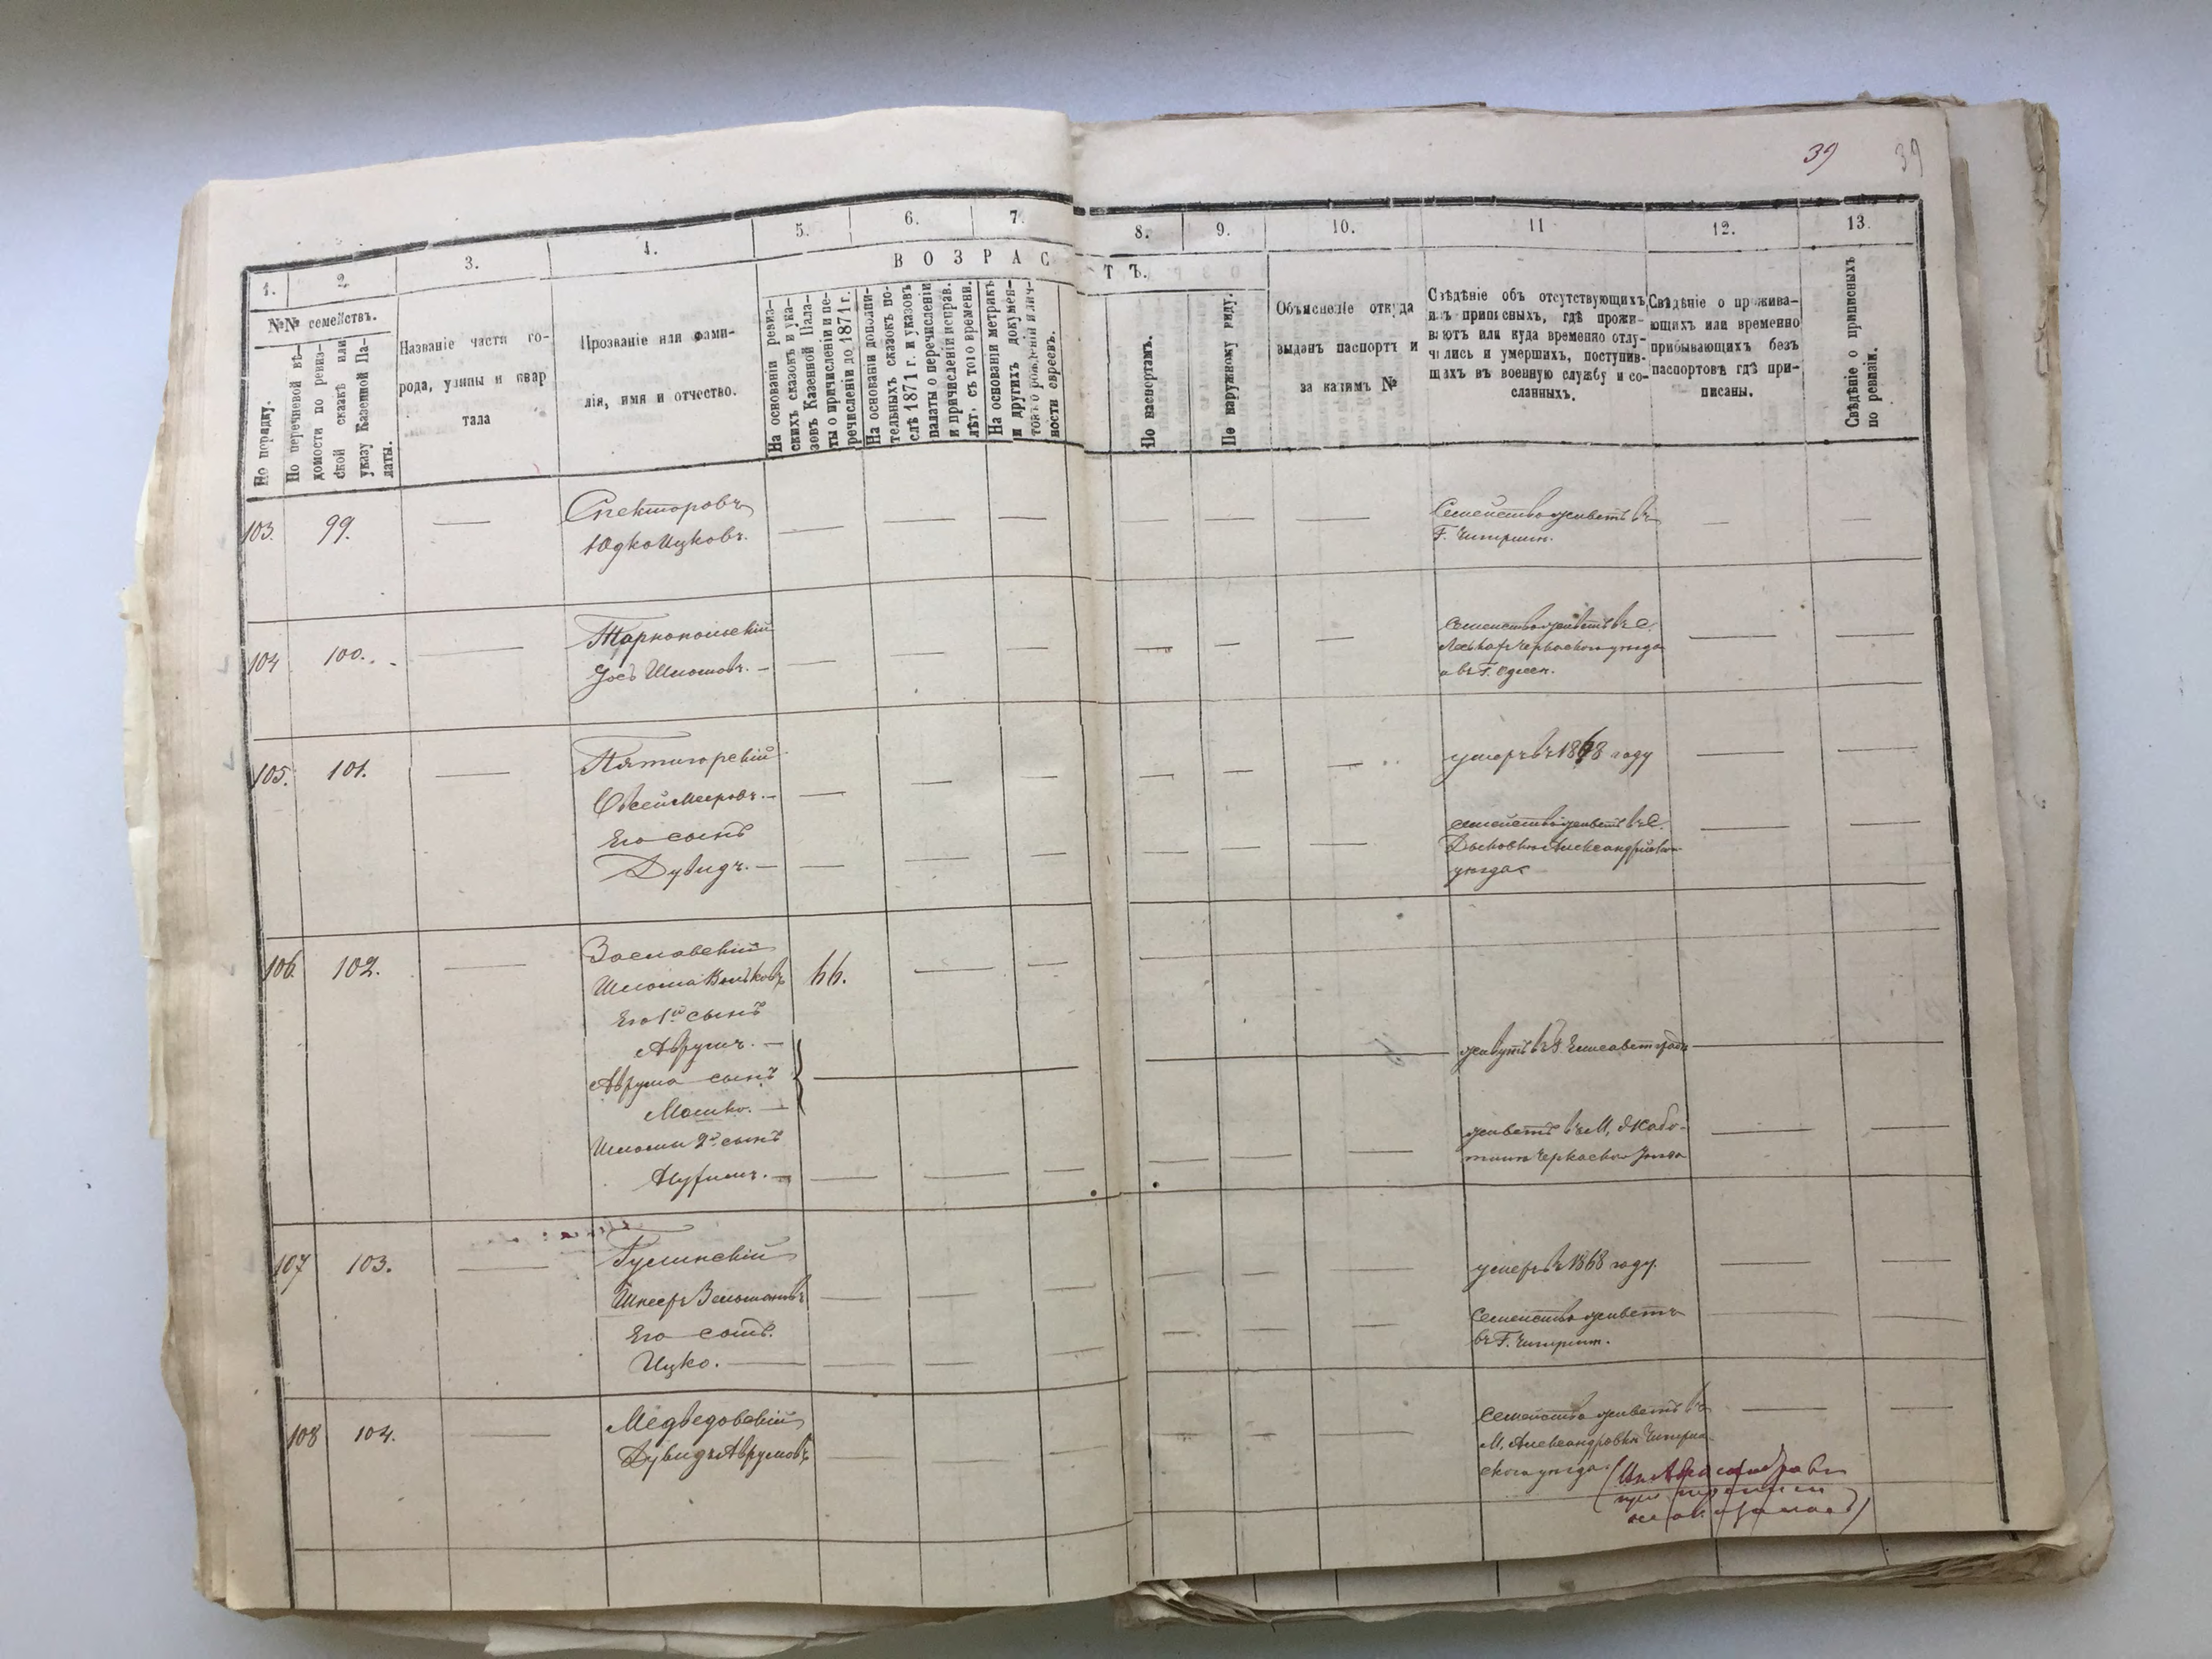 39 39
1. 2. 3. 4. 5. 6. 7. 8. 9. 10. 11 12. 13.
№№ семействъ.
По порядку.
По перечневой вѣ-
домости по ревиз-
ской сказкѣ или
указу Казенной Па-
латы.
Названіе части го-
рода, улицы и квар
тала
Прозваніе или фами-
лія, имя и отчество.
ВОЗРАСТЪ.
На основаніи ревиз-
скихъ сказокъ и ука-
зовъ Казенной Пала-
ты о причисленіи и пе-
речисленіи до 1871 г.
На основаніи дополни-
тельныхъ сказокъ по-
слѣ 1871 г. и указовъ
палаты о перечисленіи
и причисленіи исправ.
лѣт. съ того времени.
На основаніи метрикъ
и другихъ докумен-
товъ о рожденіи и лич-
ности евреевъ.
По паспортамъ.
По наружному виду.
Объясненіе откуда
выданъ паспортъ и
за какимъ №
Свѣдѣніе объ отсутствующихъ
изъ приписныхъ, гдѣ прожи-
ваютъ или куда временно отлу-
чились и умершихъ, поступив-
шихъ въ военную службу и со-
сланныхъ.
Свѣдѣніе о прожива-
ющихъ или временно
прибывающихъ безъ
паспортовъ гдѣ при-
писаны.
Свѣдѣніе о приписныхъ
по ревизіи.
103. 99. Спекторовъ
Юдко Ицковъ.
Семейство живетъ въ
Г. Чигирин.
104 100. Тарнопольскій
Іосъ Шлиомовъ.
Семейство живетъ въ С.
Черкаскаго уезда
и въ Г. Одесси.
105. 101. Пятигорскій
Овсей Мееровъ.
умеръ въ 1868 году
Его сынъ
Дувидъ.
семейство живетъ въ С.
Александрійскаго
уезда
106. 102. Заславскій
Шлиома Вольковъ 66.
Его 1й сынъ
Аврумъ.
Аврума сынъ
Мошко.
живутъ въ Г. Елисаветградѣ
Шлиомы 2й сынъ
Нухимъ.
живетъ въ М. Жабо-
тинѣ Черкаскаго Уезда
107 103. Гулинскій
умеръ въ 1868 году.
Его сынъ.
Ицко.
Семейство живетъ
въ Г. Чигирин.
108 104. Медведовскій
Дувидъ Аврумовъ
Семейство живетъ въ
М. Александровки Чигирин-
скаго уезда